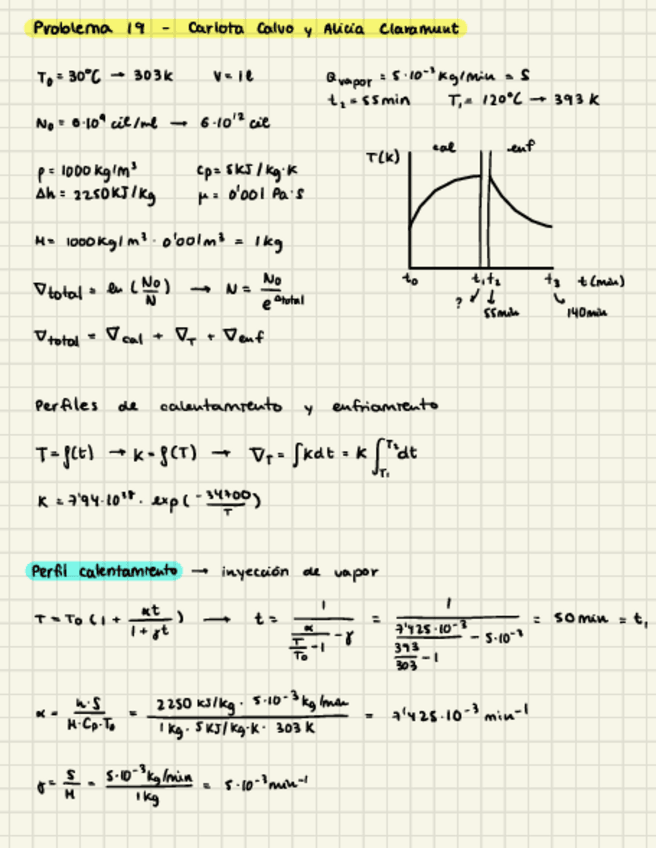 Problema 19 - Carlota Calvo y Alicia Claramunt
T₀ = 30°C → 303K    V = 1l    Qvapor = 5·10⁻³ Kg/min = S
t₂ = 55min    T₁ = 120°C → 393 K
N₀ = 6·10⁹ cél/ml → 6·10¹² cél
ρ = 1000 kg/m³    Cp = 5KJ/kg·K
Δh = 2250KJ/kg    μ = 0'001 Pa·s
T(K)    cal    enf
M = 1000Kg/m³ · 0'001m³ = 1kg
t₀    t₁    t₂    t₃    t(min)
?    55min    140min
∇total = ln (N₀/N) → N = N₀/e^∇total
∇total = ∇cal + ∇T + ∇enf
Perfiles de calentamiento y enfriamiento
T = f(t) → K = f(T) → ∇T = ∫Kdt = K ∫_T₁^T₂ dt
K = 7'94·10³⁸ · exp(-34700/T)
Perfil calentamiento → inyección de vapor
T = T₀ (1 + αt/(1+γt)) → t = 1/(α/(T/T₀ - 1) - γ) = 1/(7'425·10⁻³/(393/303 - 1) - 5·10⁻³) = 50min = t₁
α = h·S/(M·Cp·T₀) = (2250 KJ/kg · 5·10⁻³ kg/min)/(1kg · 5KJ/kg·K · 303K) = 7'425·10⁻³ min⁻¹
γ = S/M = (5·10⁻³kg/min)/(1kg) = 5·10⁻³min⁻¹